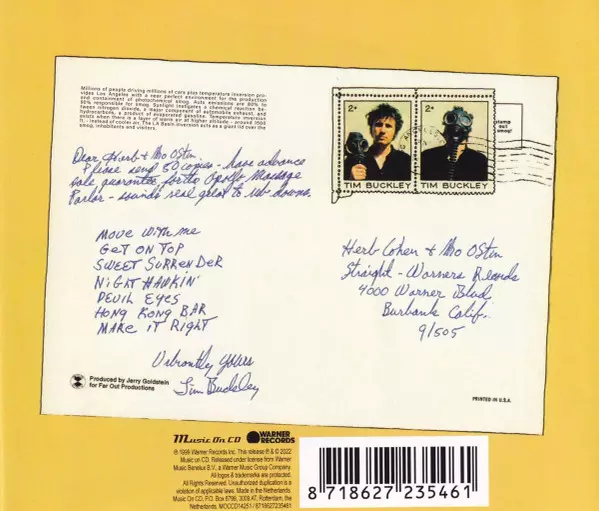 Millions of people driving millions of cars plus temperature inversion pro-
vides Los Angeles with a near perfect environment for the production
and containment of photochemical smog. Auto emissions are 80% to
90% responsible for smog. Sunlight instigates a chemical reaction be-
tween nitrogen dioxide, a major component of automobile exhaust, and
hydrocarbons, a product of evaporated gasoline. Temperature inversion
exists when there is a layer of warm air at higher altitude - around 3000
ft. - instead of cooler, on. The LA Basin inversion acts as a giant lid over the
smog, inhabitants and visitors.
2¢
2¢
TIM BUCKLEY
TIM BUCKLEY
stamp
out
smog!
Dear Herb & Mo Ostin
Please send 50 copies - have advance
sale guarantee for the Apollo Massage
Parlor - sounds real great to rub downs.
MOVE WITH ME
GET ON TOP
SWEET SURRENDER
NIGHT HAWKIN'
DEVIL EYES
HONG KONG BAR
MAKE IT RIGHT
Vibrantly Yours
Tim Buckley
Herb Cohen & Mo Ostin
Straight - Warners Records
4000 Warner Blvd
Burbank Calif.
91505
Produced by Jerry Goldstein
for Far Out Productions
PRINTED IN U.S.A.
Music On CD
WARNER
RECORDS
Warner Records Inc. This release ℗ & © 2022
Music on CD. Released under license from Warner
Music Benelux B.V., a Warner Music Group Company.
All logos & trademarks are protected.
All Rights Reserved. Unauthorized duplication is a
violation of applicable laws. Made in the Netherlands.
Music On CD, P.O. Box 6796, 3008 AT, Rotterdam, the
Netherlands. MOCCD14251 / 8718627235461
8 718627 235461